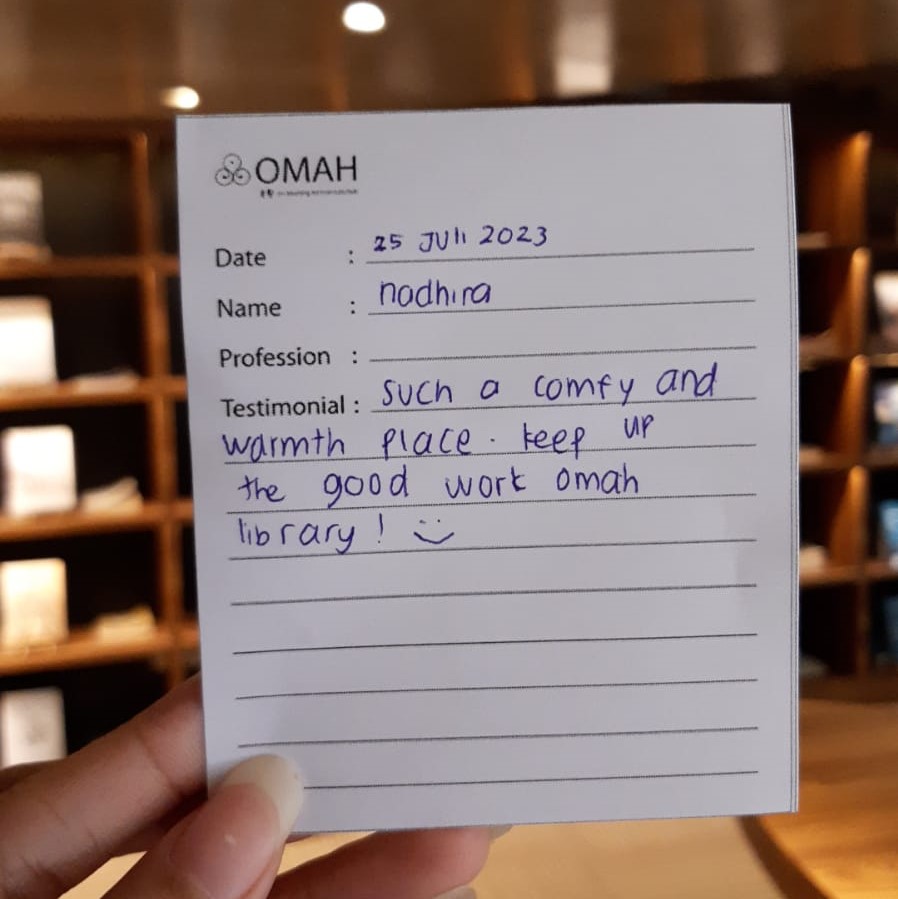 OMAH
Date : 25 JUli 2023
Name : nadhira
Profession :
Testimonial : such a comfy and
warmth place. keep up
the good work omah
library!